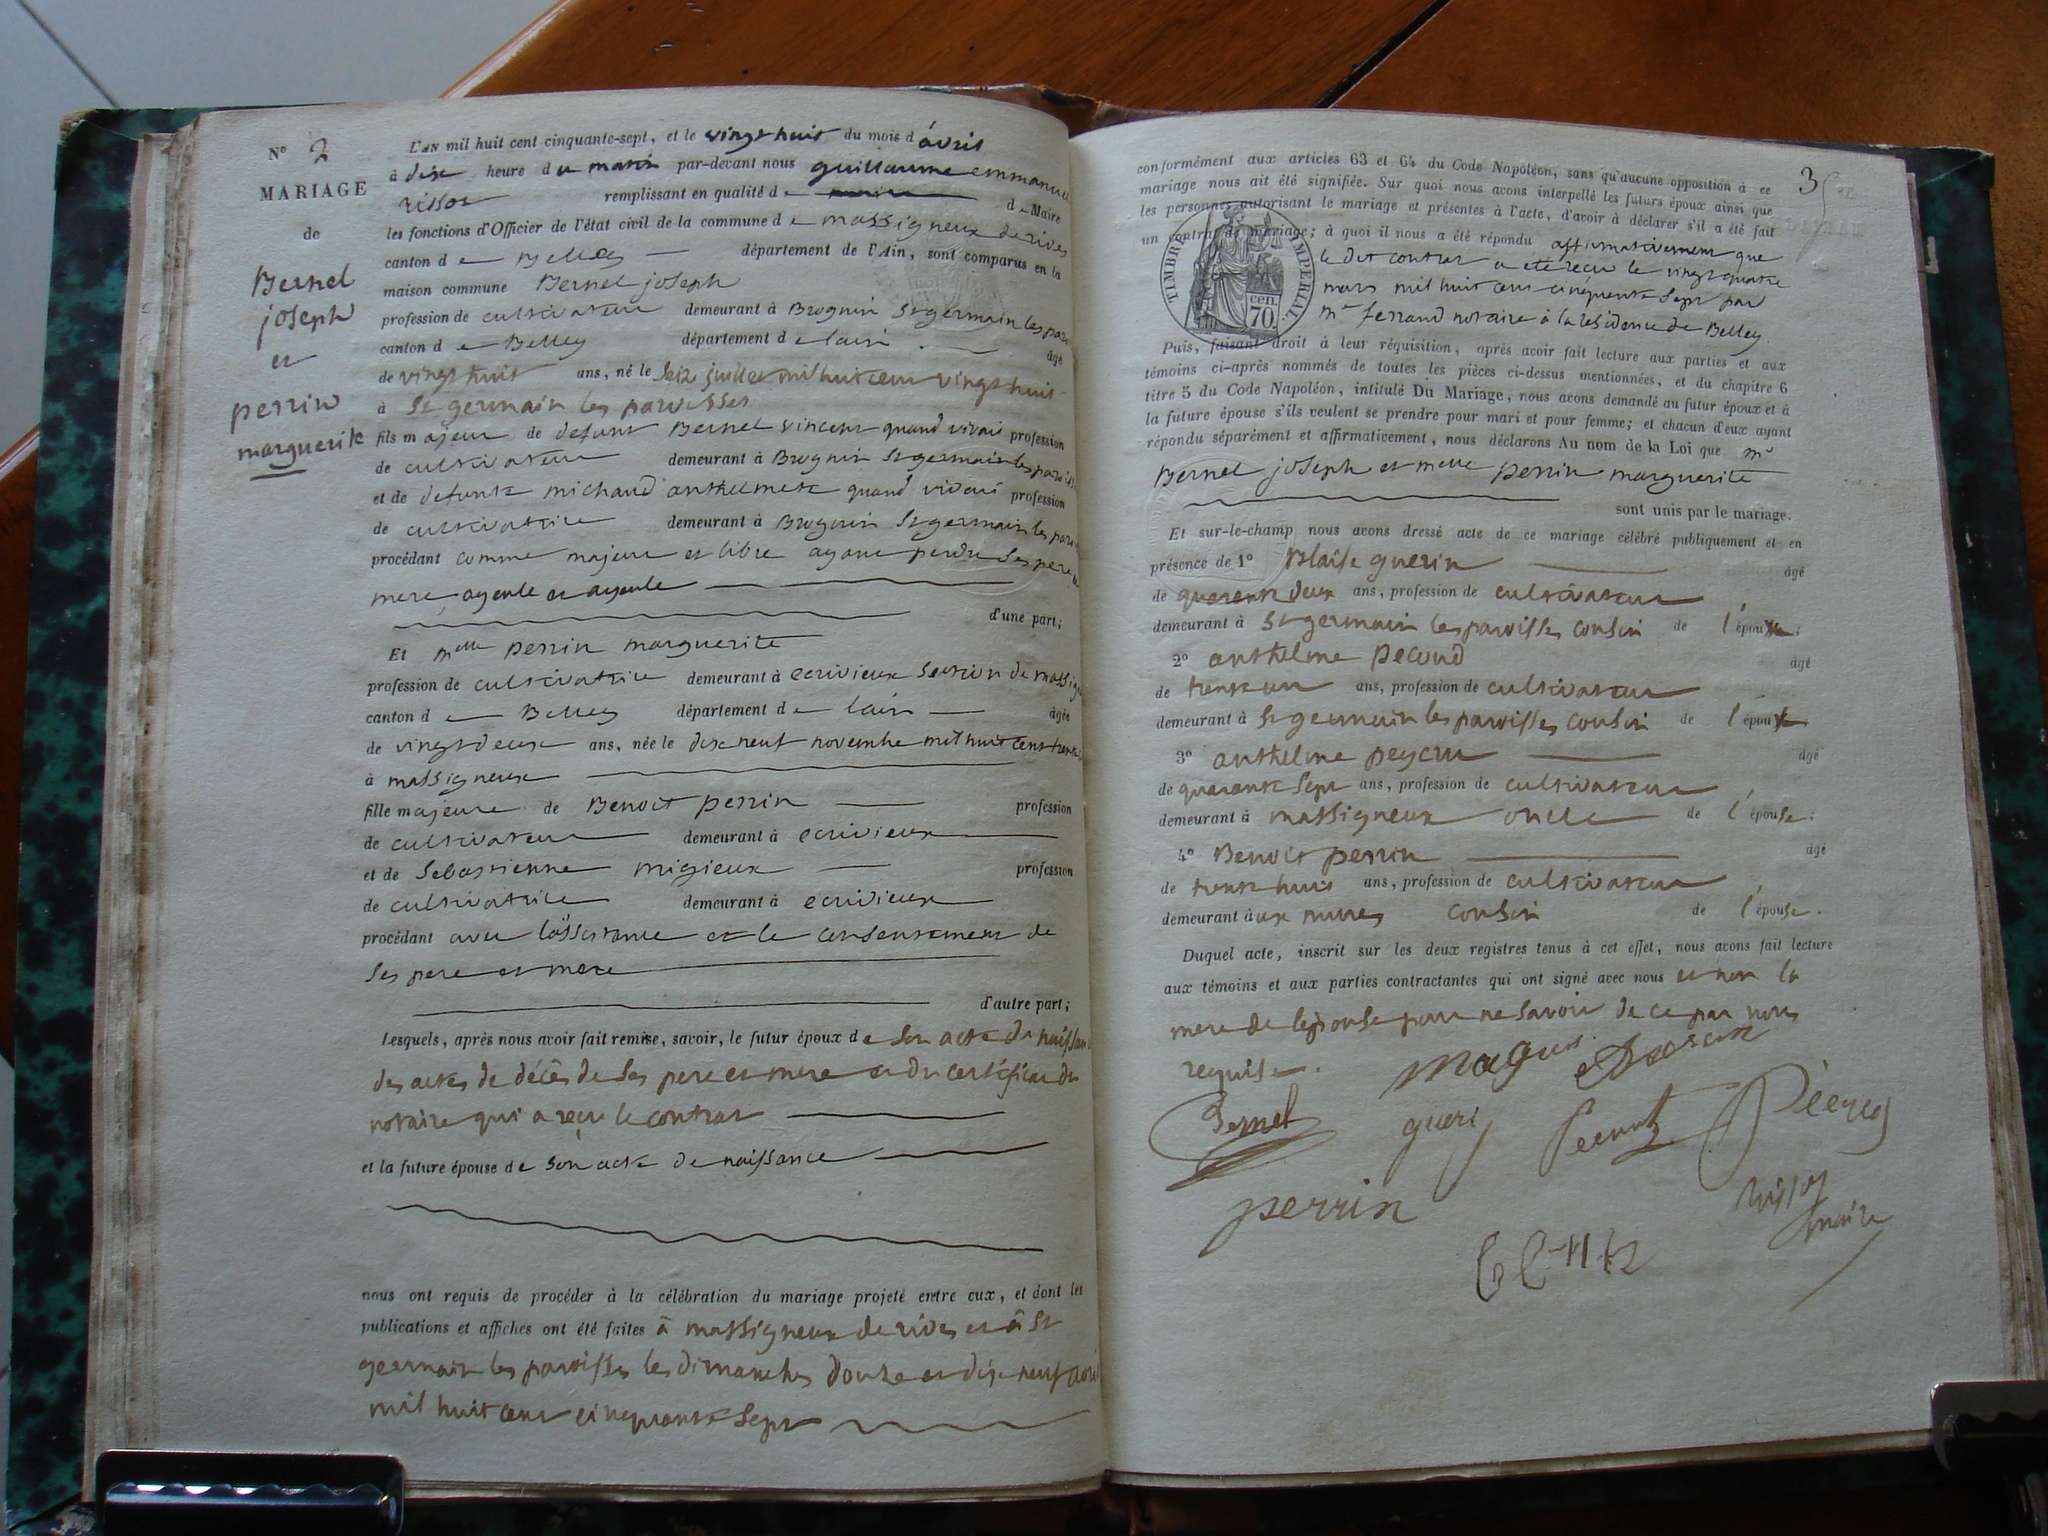 N° 2
MARIAGE
de
Bernel
joseph
et
perrin
marguerite
L'AN mil huit cent cinquante-sept, et le vingt huit du mois d'avril
à dix heure du matin par-devant nous guillaume emmanuel
rissot remplissant en qualité de de Maire
les fonctions d'Officier de l'état civil de la commune de massigneux derives
canton de Belley département de l'Ain, sont comparus en la
maison commune Bernel joseph
profession de cultivateur demeurant à Brognin St germain les paro
canton de Belley département de lain âgé
de vingt huit ans, né le seize juillet mil huit cent vingt huit
à St germain les paroisses
fils majeur de defunt Bernel vincent quand vivai profession
de cultivateur demeurant à Brognin St germain les paroiss
et de defunte michaud anthelmete quand vivai profession
de cultivatrice demeurant à Brognin St germain les paro
procédant comme majeur et libre ayant perdu ses pere
mere, ayeule et ayeule
d'une part;
Et melle perrin marguerite
profession de cultivatrice demeurant à ecrivieux section de massig
canton de Belley département de lain âgée
de vingt deux ans, née le dix neuf novembre mil huit cent trente
à massigneux
fille majeure de Benoit perrin profession
de cultivateur demeurant à ecrivieux
et de Sebastienne migieux profession
de cultivatrice demeurant à ecrivieux
procédant avec lassistance et le consentement de
ses pere et mere
d'autre part;
Lesquels, après nous avoir fait remise, savoir, le futur époux de son acte de naissan
des actes de décès de ses pere et mere et du certificat du
notaire qui a reçu le contrat
et la future épouse de son acte de naissance
nous ont requis de procéder à la célébration du mariage projeté entre eux, et dont les
publications et affiches ont été faites à massigneux de rives et à St
germain les paroisses les dimanches douze et dix neuf avril
mil huit cent cinquante sept
3
conformément aux articles 63 et 64 du Code Napoléon, sans qu'aucune opposition à ce
mariage nous ait été signifiée. Sur quoi nous avons interpellé les futurs époux ainsi que
les personnes autorisant le mariage et présentes à l'acte, d'avoir à déclarer s'il a été fait
un contrat de mariage; à quoi il nous a été répondu affirmativement que
le dit contrat a eté reçu le vingt quatre
mars mil huit cent cinquante sept par
mr ferrand notaire à la residence de Belley
TIMBRE IMPERIAL
cen. 70
Puis, faisant droit à leur réquisition, après avoir fait lecture aux parties et aux
témoins ci-après nommés de toutes les pièces ci-dessus mentionnées, et du chapitre 6
titre 5 du Code Napoléon, intitulé Du Mariage, nous avons demandé au futur époux et à
la future épouse s'ils veulent se prendre pour mari et pour femme; et chacun d'eux ayant
répondu séparément et affirmativement, nous déclarons Au nom de la Loi que mr
Bernel joseph et melle perrin marguerite
sont unis par le mariage.
Et sur-le-champ nous avons dressé acte de ce mariage célébré publiquement et en
présence de 1° Blaise guerin âgé
de quarente deux ans, profession de cultivateur
demeurant à St germain les paroisses cousin de l'époux;
2° anthelme pecoud âgé
de trente un ans, profession de cultivateur
demeurant à St germain les paroisses cousin de l'époux
3° anthelme peycru âgé
de quarante sept ans, profession de cultivateur
demeurant à massigneux oncle de l'épouse;
4° Benoit perrin âgé
de trente huit ans, profession de cultivateur
demeurant aux mures cousin de l'épouse.
Duquel acte, inscrit sur les deux registres tenus à cet effet, nous avons fait lecture
aux témoins et aux parties contractantes qui ont signé avec nous et non la
mere de lépouse pour ne savoir de ce par nous
requise.
Bernel gueri
perrin rissot
maire